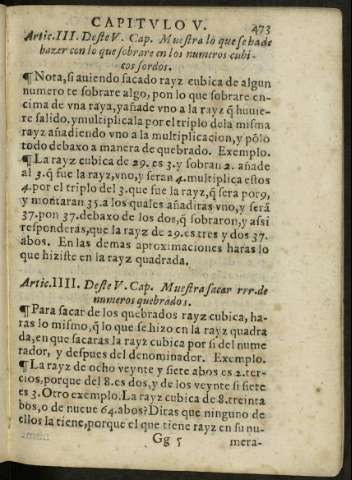 CAPITVLO V.
473
Artic.III. Deste V. Cap. Muestra lo que se ha de
hazer con lo que sobrare en los numeros cubi-
cos sordos.
¶Nota, si auiendo sacado rayz cubica de algun
numero te sobrare algo, pon lo que sobrare en-
cima de vna raya, y añade vno a la rayz q̃ huuie-
re salido, y multiplicala por el triplo dela misma
rayz añadiendo vno a la multiplicacion, y põlo
todo debaxo a manera de quebrado. Exemplo.
¶La rayz cubica de 29. es 3. y sobran 2. añade
al 3. q̃ fue la rayz, vno, y seran 4. multiplica estos
4. por el triplo del 3. que fue la rayz, q̃ sera por 9,
y montaran 35. a los quales añadiras vno, y será
37. pon 37. debaxo de los dos, q̃ sobraron, y assi
responderas, que la rayz de 29. es tres y dos 37.
abos. En las demas aproximaciones haras lo
que hiziste en la rayz quadrada.
Artic.IIII. Deste V. Cap. Muestra sacar rrr. de
numeros quebrados.
¶Para sacar de los quebrados rayz cubica, ha-
ras lo mismo, q̃ lo que se hizo en la rayz quadra
da, en que sacaras la rayz cubica por si del nume
rador, y despues del denominador. Exemplo.
¶La rayz de ocho veynte y siete abos es 2. ter-
cios, porque del 8. es dos, y de los veynte si siete
es 3. Otro exemplo. La rayz cubica de 8. treinta
bos, o de nueue 64. abos? Diras que ninguno de
ellos la tiene, porque el que tiene rayz en su nu-
Gg 5
mera-